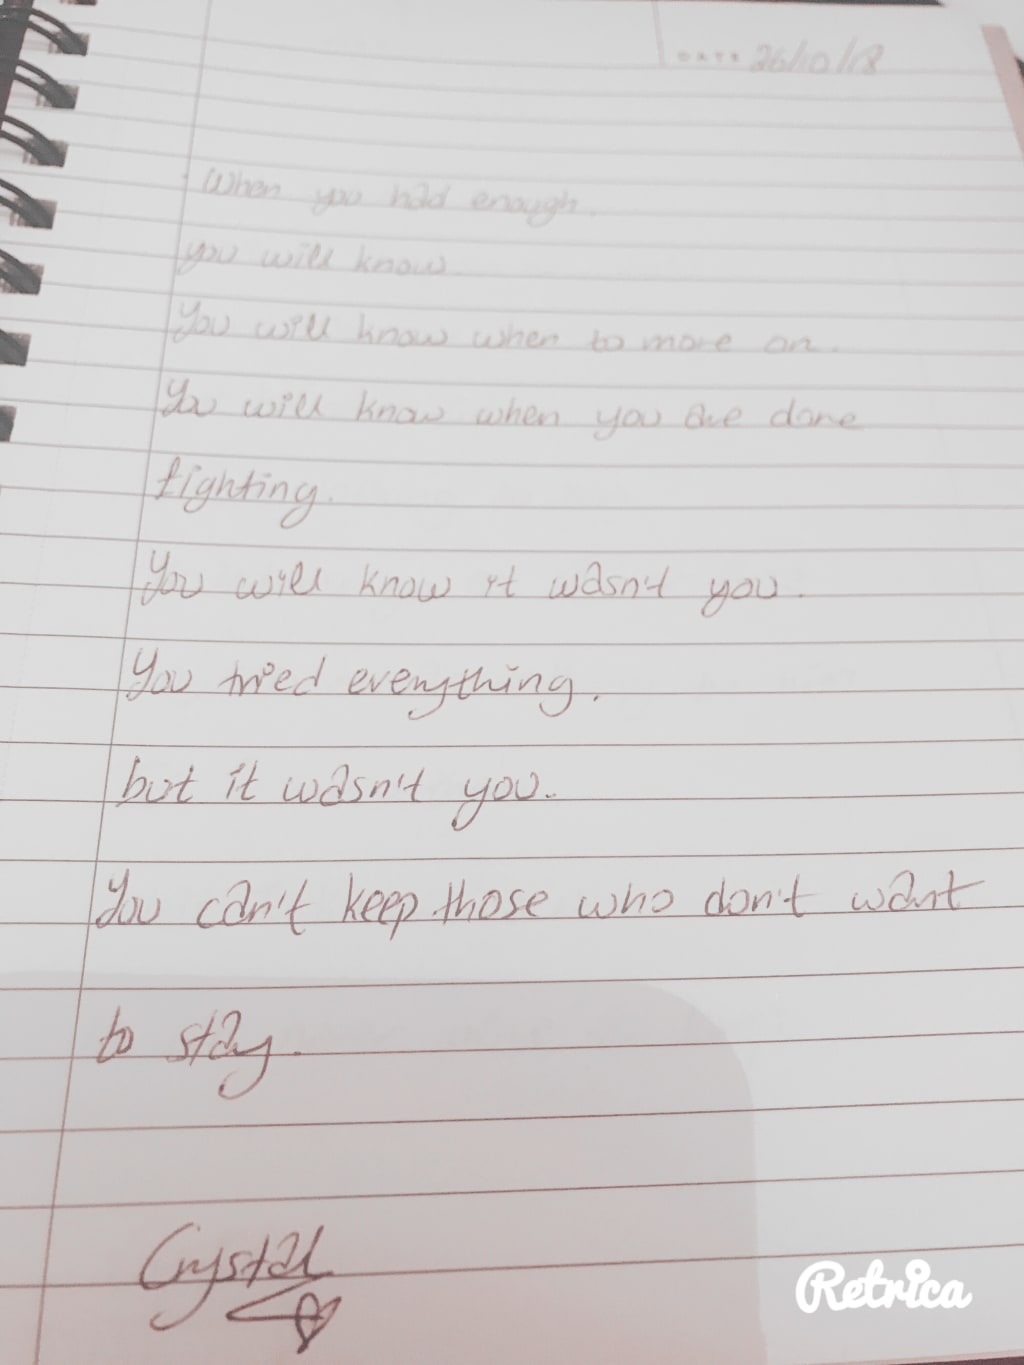 DATE 26/10/18
When you had enough.
you will know
You will know when to move on.
You will know when you are done
fighting.
You will know it wasn't you.
You tried everything.
but it wasn't you.
You can't keep those who don't want
to stay.
Crystal
Retrica